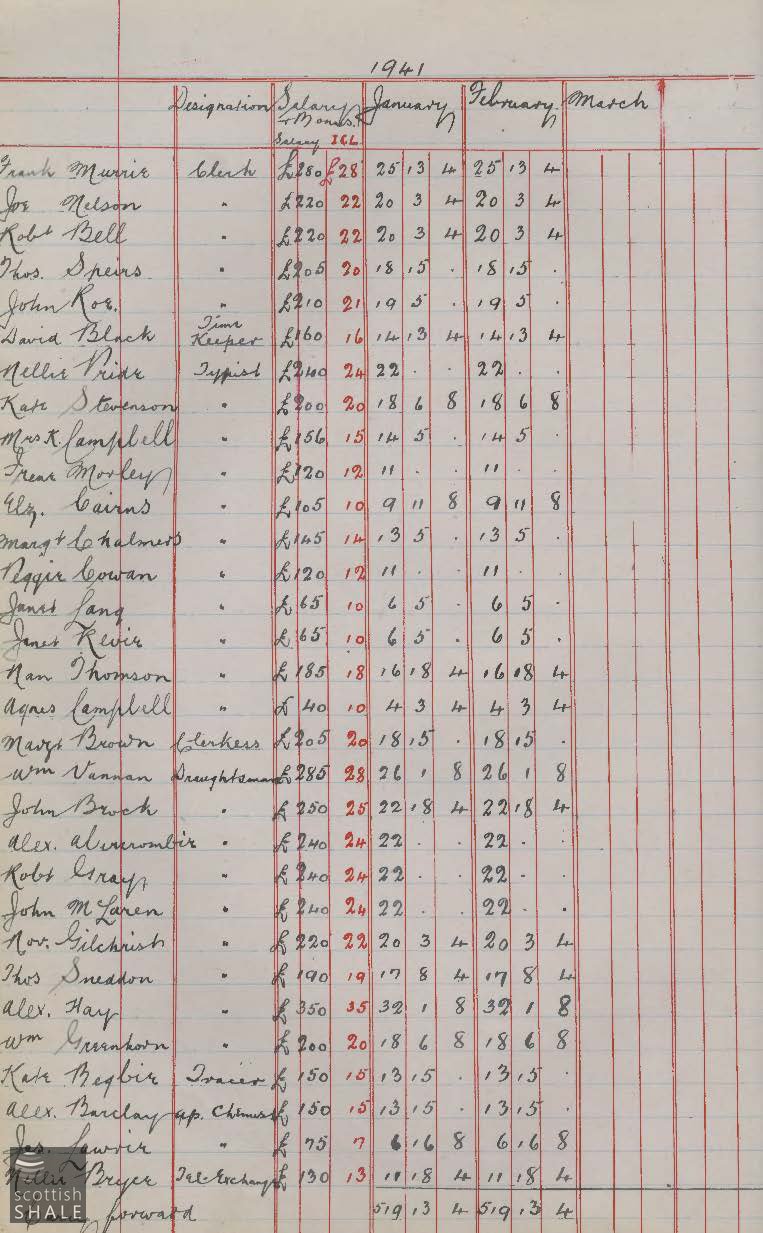 1941
Designation Salary + Bonus. January February March
Salary ICL
Frank Murrie Clerk £280 £28 25 13 4 25 13 4
Joe Nelson " £220 22 20 3 4 20 3 4
Robt Bell " £220 22 20 3 4 20 3 4
Thos. Speirs " £205 20 18 15 . 18 15 .
John Roe. " £210 21 19 5 . 19 5 .
David Black Time Keeper £160 16 14 13 4 14 13 4
Nellie Pride Typist £240 24 22 . . 22 . .
Kate Stevenson " £200 20 18 6 8 18 6 8
Mrs K. Campbell " £156 15 14 5 . 14 5 .
Morley " £120 12 11 . . 11 . .
Elz. Cairns " £105 10 9 11 8 9 11 8
Margt Chalmers " £145 14 13 5 . 13 5 .
Peggie Cowan " £120 12 11 . . 11 . .
Janet Lang " £65 10 6 5 . 6 5 .
Janet Kevie " £65 10 6 5 . 6 5 .
Nan Thomson " £185 18 16 18 4 16 18 4
Agnes Campbell " £40 10 4 3 4 4 3 4
Margt Brown Clerkess £205 20 18 15 . 18 15 .
Wm Vannan Draughtsman £285 28 26 1 8 26 1 8
John Brock " £250 25 22 18 4 22 18 4
Alex. Abercrombie " £240 24 22 . . 22 . .
Robt Gray " £240 24 22 . . 22 . .
John McLaren " £240 24 22 . . 22 . .
Nor. Gilchrist " £220 22 20 3 4 20 3 4
Thos Sneddon " £190 19 17 8 4 17 8 4
Alex. Hay " £350 35 32 1 8 32 1 8
Wm Greenhorn " £200 20 18 6 8 18 6 8
Kate Begbie Tracer £150 15 13 15 . 13 15 .
Alex. Barclay ap. Chemist £150 15 13 15 . 13 15 .
Jas. Lawrie " £75 7 6 16 8 6 16 8
Nellie Bryce Tel-Exchange £130 13 11 18 4 11 18 4
Carry forward 519 13 4 519 13 4
scottish
SHALE